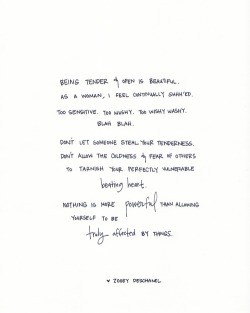 BEING TENDER & OPEN IS BEAUTIFUL.
AS A WOMAN, I FEEL CONTINUALLY SHHH'ED.
TOO SENSITIVE. TOO MUSHY. TOO WISHY WASHY.
BLAH BLAH.
DON'T LET SOMEONE STEAL YOUR TENDERNESS.
DON'T ALLOW THE COLDNESS & FEAR OF OTHERS
TO TARNISH YOUR PERFECTLY VULNERABLE
beating heart.
NOTHING IS MORE powerful THAN ALLOWING
YOURSELF TO BE
truly affected BY THINGS.
ZOOEY DESCHANEL